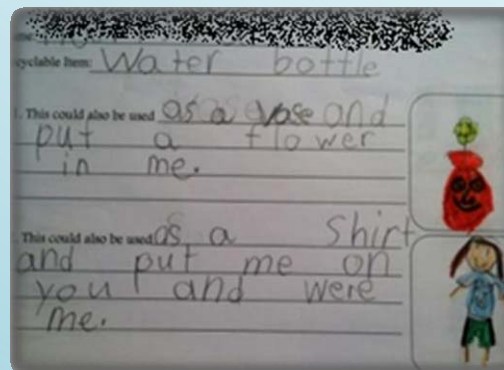 cyclable Item: Water bottle
1. This could also be used as a vase and
put a flower
in me.
This could also be used as a Shirt
and put me on
you and were
me.